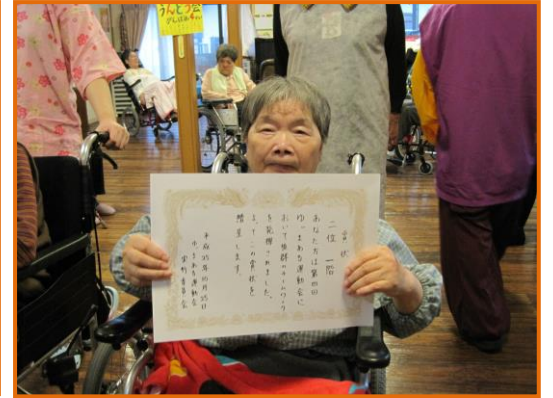 うんどう会
賞状
二位 一階
あなた方は第四回
ゆーまあち運動会に
おいて抜群のチームワーク
を発揮されました。
よってこの賞状を
贈呈します。
平成25年10月25日
ゆーまあち運動会
実行委員会